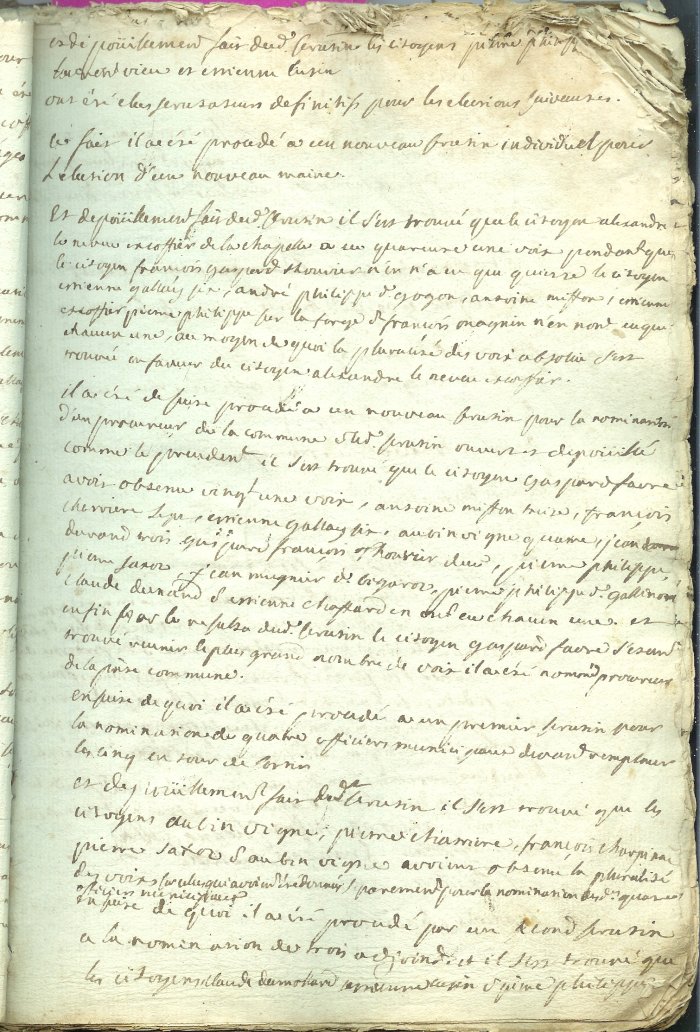 et dépoüillement fait dud. scrutin les citoyens pierre
et etienne
ont été elus scrutateurs definitifs pour les elections suivantes.
ce fait il a été procedé a un nouveau scrutin individuel pour
l'election d'un nouveau maire.
Et depoüillement fait dud. scrutin il s'est trouvé que le citoyen alexandre
la chapelle a eu quarente une voix pendant que
le citoyen françois gaspard n'en n'a eu que quinze le citoyen
etienne gallay andré philippe d. antoine miffon, etienne
pierre philippe sur la forge & françois n'en n'ont eu que
chacun une, au moyen de quoi la pluralité des voix absolue s'est
trouvé en faveur du citoyen alexandre
il a été de suite procedé a un nouveau scrutin pour la nomination
d'un procureur de la commune & led. scrutin ouvert et depoüillé
comme le precedent il s'est trouvé que le citoyen gaspard favre
avoit obtenu vingt une voix, antoine miffon treize, françois
sept, etienne gallay six, aubin vigne quatre, jean
durand trois, gaspard françois deux, pierre philippe,
pierre jean mugnier d. pierre philippe d.
claude durand & etienne chaffard en ont eu chacun une et
enfin par le resulta dud. scrutin le citoyen gaspard favre s'etant
trouvé reunir le plus grand nombre de voix il a été nommé procureur
de la ditte commune.
ensuite de quoi il a été procedé a un premier scrutin pour
la nomination de quatre officiers municipaux devant remplacer
les cinq en tour de sortir
et depoüillement fait dud. scrutin il s'est trouvé que les
citoyens aubin vigne, pierre françois
pierre & aubin vigne avoient obtenu la pluralité
des voix sur celles qui avoient été données separement pour la nomination desd. quatre
officiers municipaux
ensuite de quoi il a été procedé par un second scrutin
a la nomination de trois adjoints et il s'est trouvé que
les citoyens claude etienne & pierre philippe